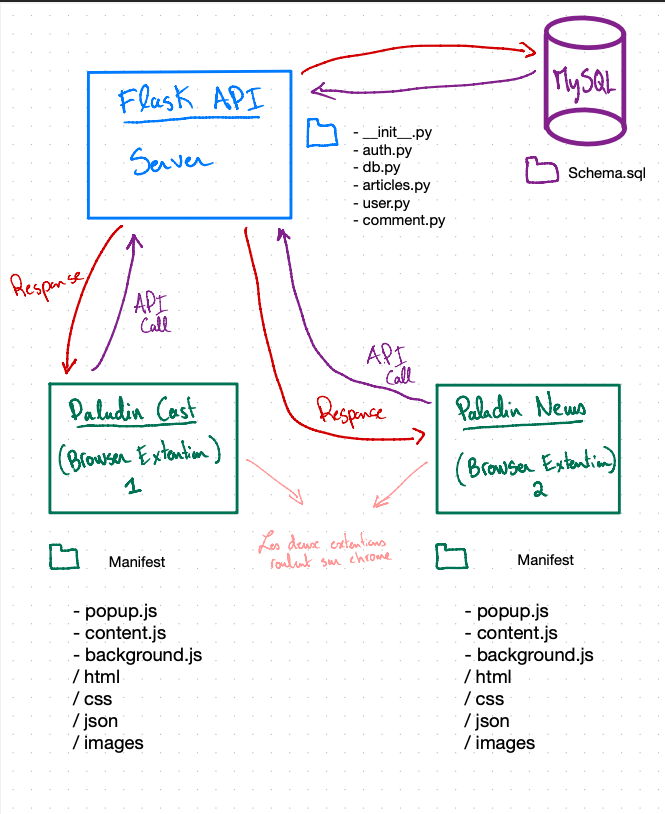 Flask API
Server
- __init__.py
- auth.py
- db.py
- articles.py
- user.py
- comment.py
MySQL
Schema.sql
Response
API
Call
API
Call
Response
Paludin Cast
(Browser Extention)
1
Paladin News
(Browser Extention)
2
Les deux extentions
roulent sur chrome
Manifest
- popup.js
- content.js
- background.js
/ html
/ css
/ json
/ images
Manifest
- popup.js
- content.js
- background.js
/ html
/ css
/ json
/ images